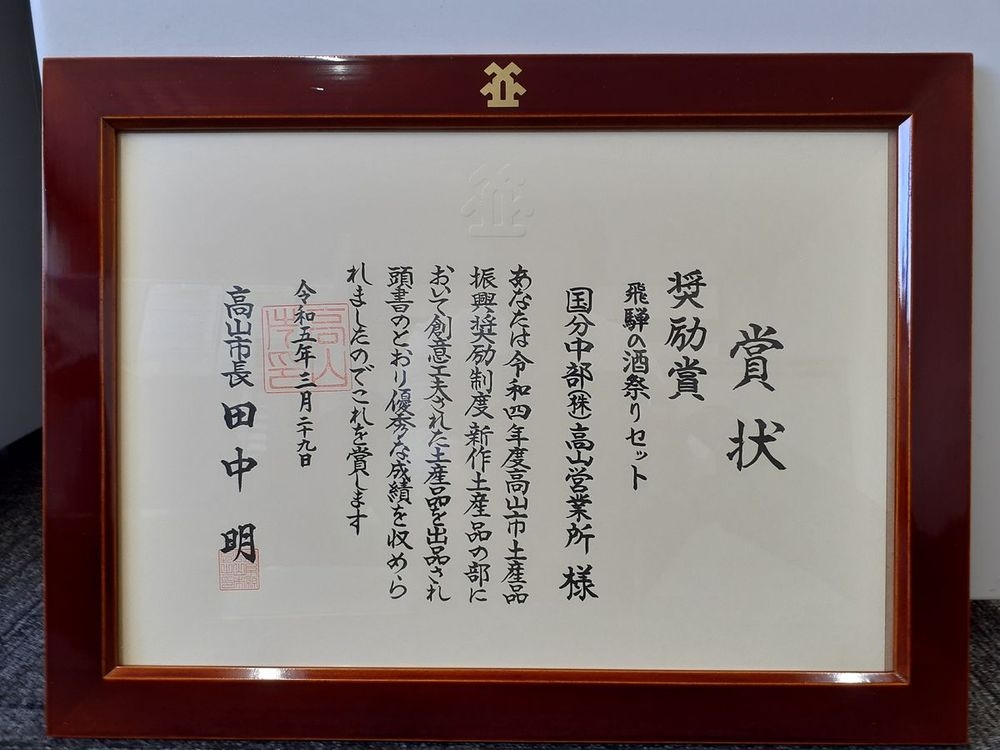 賞状
奨励賞
飛騨の酒祭りセット
国分中部(株)高山営業所 様
あなたは令和四年度高山市土産品
振興奨励制度 新作土産品の部に
おいて創意工夫された土産品を出品され
頭書のとおり優秀な成績を収めら
れましたのでこれを賞します
令和五年三月二十九日
高山市長 田中 明
高山市印